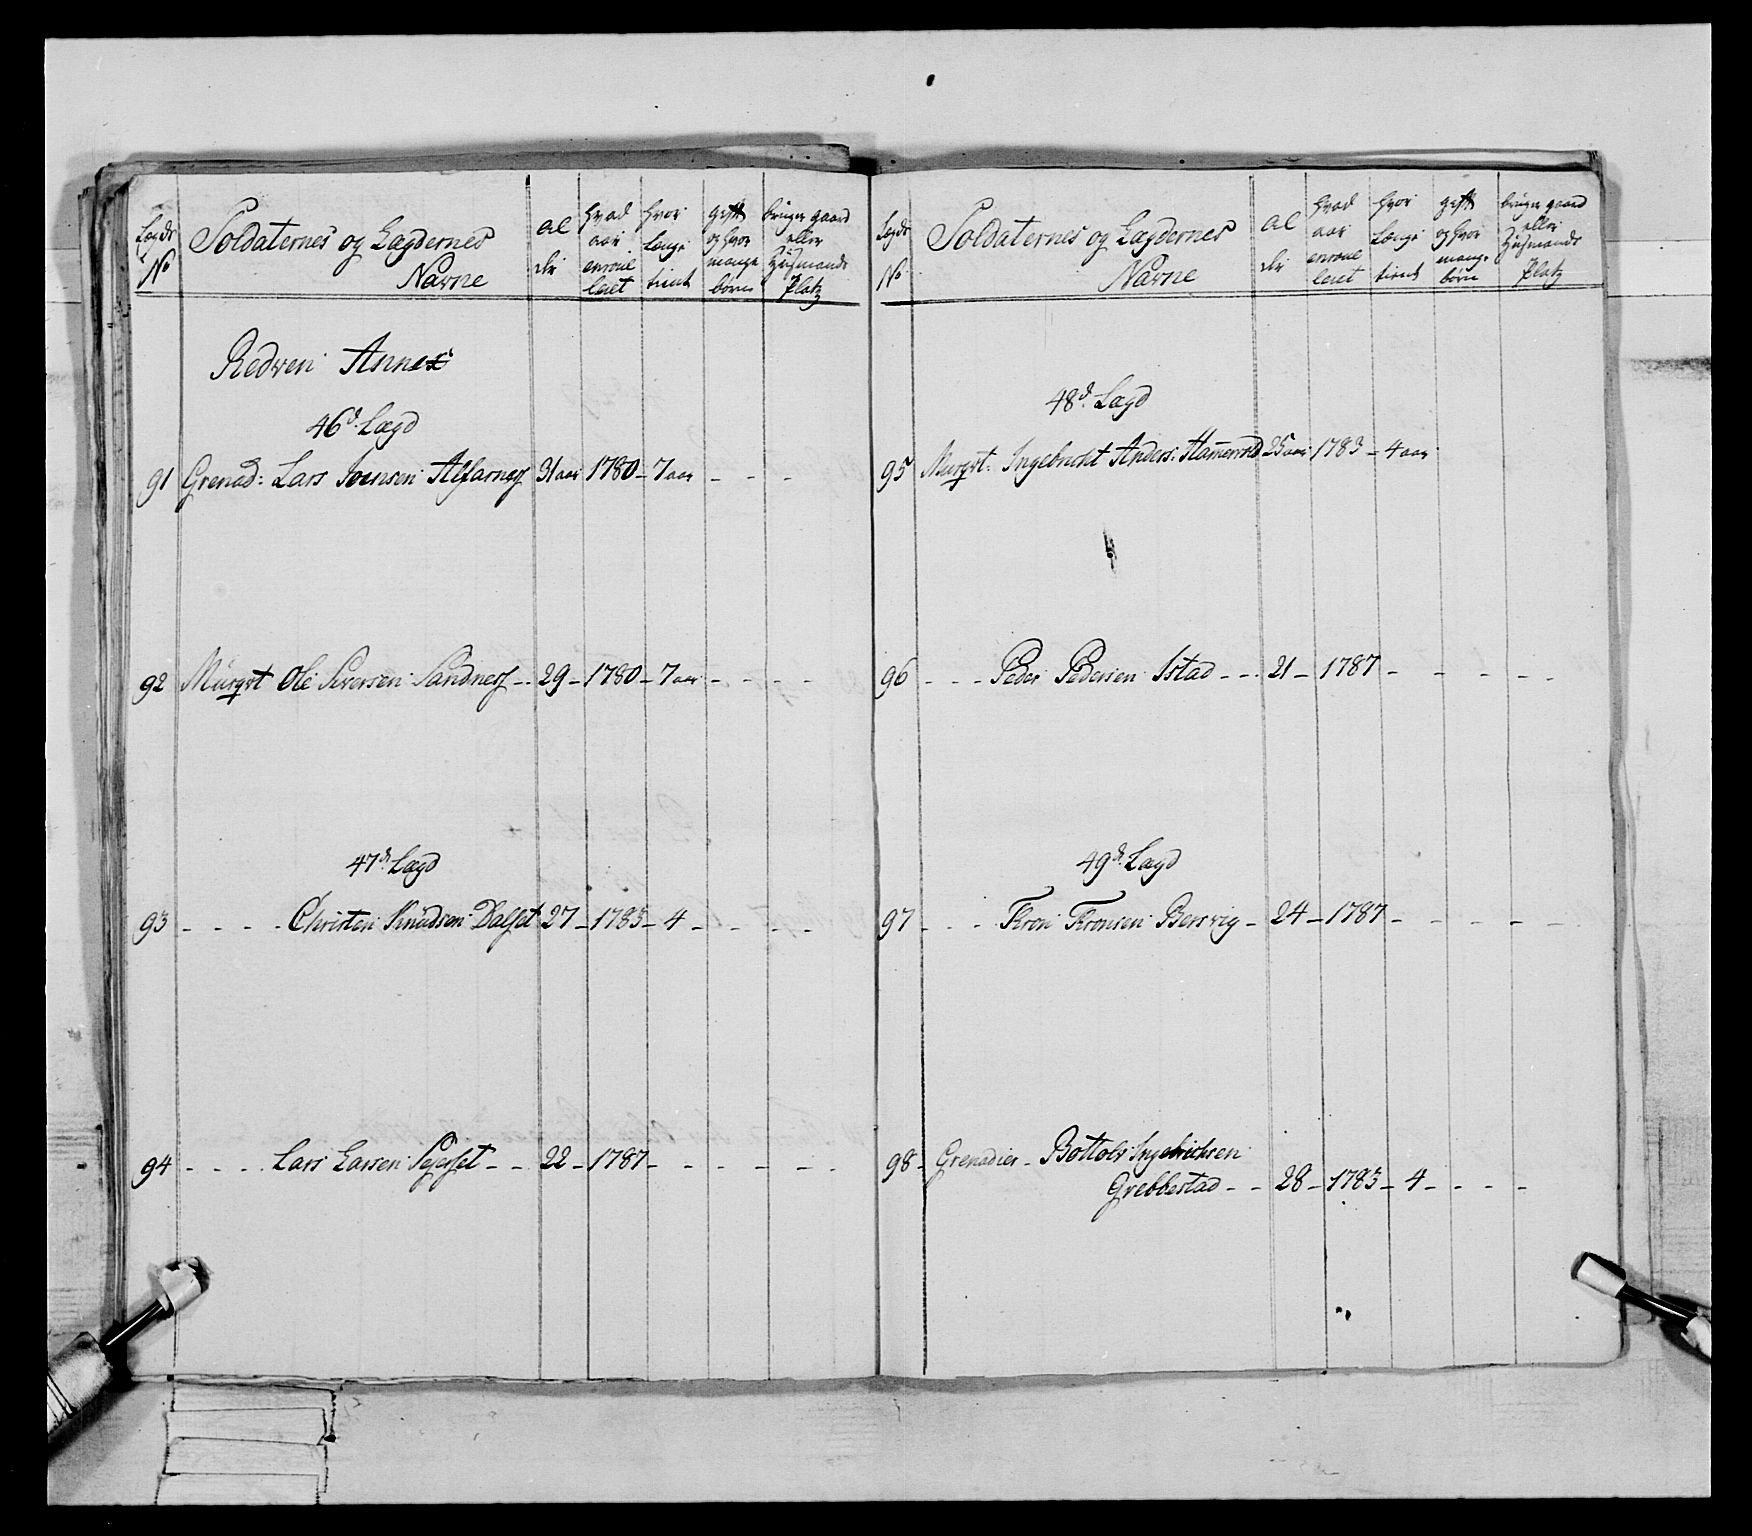 Lægds No
Soldaternes og Lægdernes Navne
al der
hvad aar enroulleret
hvor længe tient
gift og hvor mange børn
bruger gaard eller Huusmands Platz
Redven Annex
46d. Lægd
91 Grenad: Lars Iversen Alfarnes 31 aar 1780 - 7 aar - - -
92 Murqvt Ole Siversen Sandnes - . 29 - 1780 - 7 aar - - - -
47de Lægd
93 - - - - Christen Knudsen Dalset 27 - 1783 - 4 - - - -
94 - - - - Lars Larsen Sejerset - - 22 - 1787 - - - - - -
Lægds No
Soldaternes og Lægdernes Navne
al der
hvad aar enroulleret
hvor længe tient
gift og hvor mange børn
bruger gaard eller Huusmands Platz
48d. Lægd
95 Murqvt: Ingebricht Anders: Hamervold 25 aar 1783 - 4 aar
96 - - - Peder Pedersen Istad - - . 21 - 1787 - - - - -
49de Lægd
97 - - - Tron Tronsen Bervig - 24 - 1787 - - - - -
98 - Grenadier - Bottolv Ingebrichtsen
Grebbestad - - 28 - 1783 - 4 - - - -